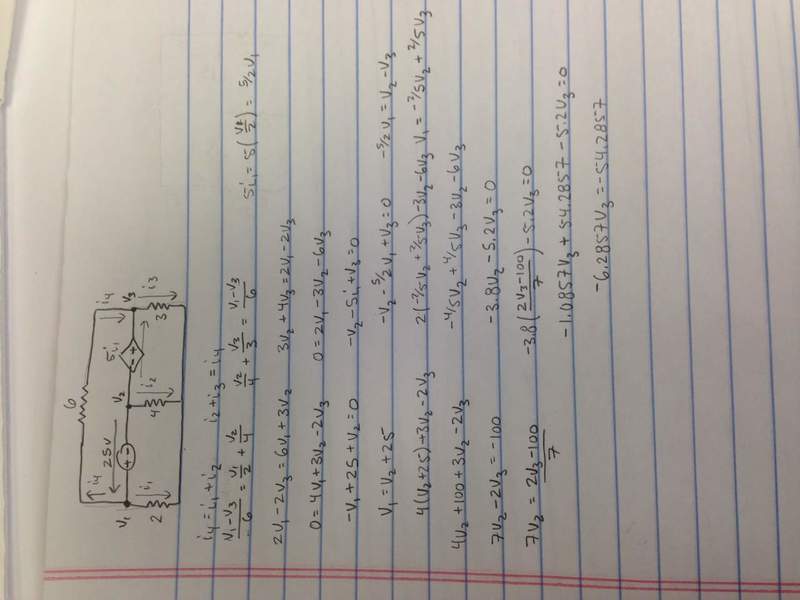 6
i₄ 25V i₄
V₁ V₂ 5i₁ V₃
i₁ i₂ i₃
2 4 3
i₄ = i₁ + i₂ i₂ + i₃ = i₄
(V₁-V₃)/6 = V₁/2 + V₂/4 V₂/4 + V₃/3 = (V₁-V₃)/6 5i₁ = 5( /2) = 5/2 V₁
2V₁-2V₃=6V₁+3V₂ 3V₂+4V₃=2V₁-2V₃
0=4V₁+3V₂-2V₃ 0=2V₁-3V₂-6V₃
-V₁+25+V₂=0 -V₂-5i₁+V₃=0
V₁=V₂+25 -V₂-5/2V₁+V₃=0 -5/2V₁=V₂-V₃
4(V₂+25)+3V₂-2V₃ 2(-2/5V₂+2/5V₃)-3V₂-6V₃ V₁=-2/5V₂+2/5V₃
4V₂+100+3V₂-2V₃ -4/5V₂+4/5V₃-3V₂-6V₃
7V₂-2V₃=-100 -3.8V₂-5.2V₃=0
7V₂ = (2V₃-100)/7 -3.8((2V₃-100)/7)-5.2V₃=0
-1.0857V₃+54.2857-5.2V₃=0
-6.2857V₃=-54.2857